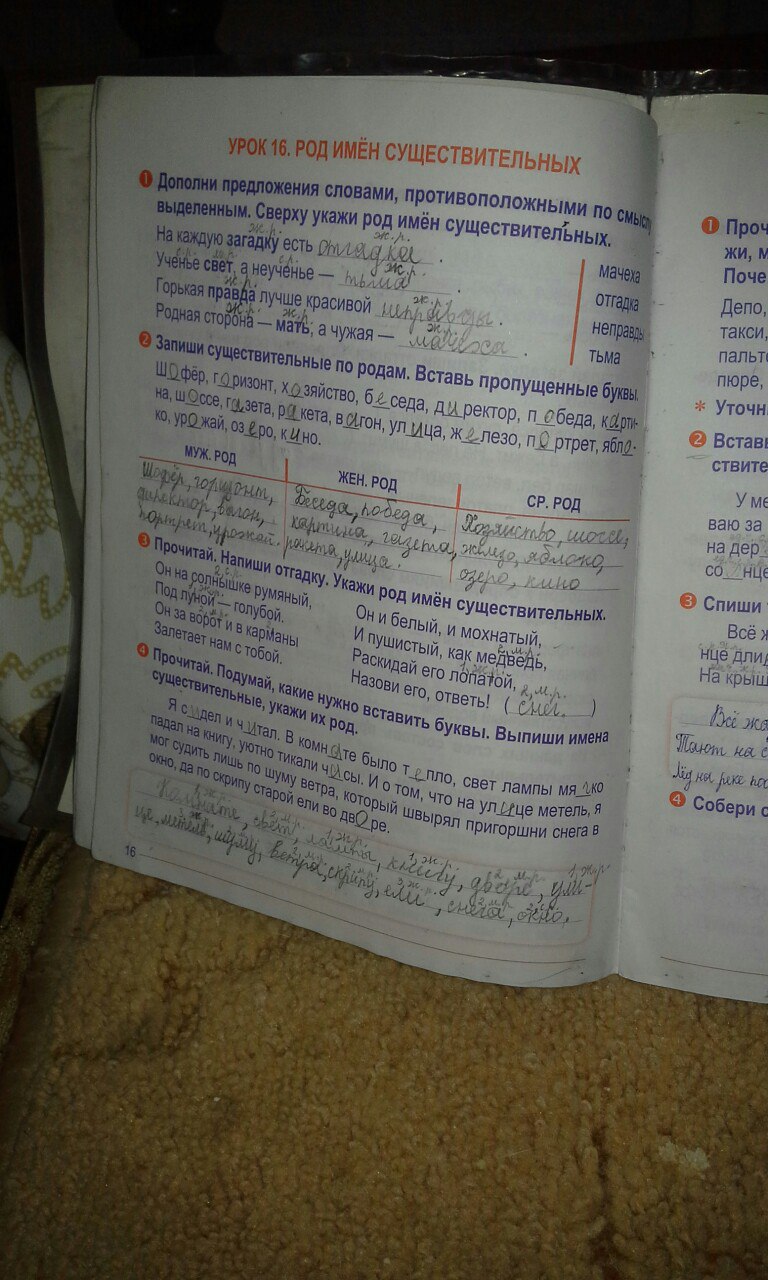 УРОК 16. РОД ИМЁН СУЩЕСТВИТЕЛЬНЫХ
1 Дополни предложения словами, противоположными по смыслу
выделенным. Сверху укажи род имён существительных.
ж.р. ж.р.
На каждую загадку есть отгадка.
с.р. м.р. с.р. ж.р.
Ученье свет, а неученье — тьма.
ж.р. ж.р.
Горькая правда лучше красивой неправды.
ж.р. ж.р. ж.р.
Родная сторона — мать, а чужая — мачеха.
мачеха
отгадка
неправды
тьма
2 Запиши существительные по родам. Вставь пропущенные буквы.
Шофёр, горизонт, хозяйство, беседа, директор, победа, карти-
на, шоссе, газета, ракета, вагон, улица, железо, портрет, ябло-
ко, урожай, озеро, кино.
МУЖ. РОД ЖЕН. РОД СР. РОД
Шофёр, горизонт, Беседа, победа, Хозяйство, шоссе,
директор, вагон, картина, газета, железо, яблоко,
портрет, урожай. ракета, улица. озеро, кино
3 Прочитай. Напиши отгадку. Укажи род имён существительных.
Он на солнышке румяный,
Под луной — голубой.
Он за ворот и в карманы
Залетает нам с тобой.
Он и белый, и мохнатый,
2 м.р.
И пушистый, как медведь,
1 ж.р.
Раскидай его лопатой,
2 м.р.
Назови его, ответь! (снег.)
4 Прочитай. Подумай, какие нужно вставить буквы. Выпиши имена
существительные, укажи их род.
Я сидел и читал. В комнате было тепло, свет лампы мягко
падал на книгу, уютно тикали часы. И о том, что на улице метель, я
мог судить лишь по шуму ветра, который швырял пригоршни снега в
окно, да по скрипу старой ели во дворе.
Комнате, свет, лампы, книгу, дворе, ули-
це, метель, шуму, ветра, скрипу, ели, снега, окно.
16
1 Проч
жи, м
Поче
Депо,
такси,
пальто
пюре,
* Уточн
2 Встав
ствите
У ме
ваю за
на дер
со нце
3 Спиши
Всё ж
нце дли
На крыш
Всё жа
Тают на с
Лёд на реке по
4 Собери с